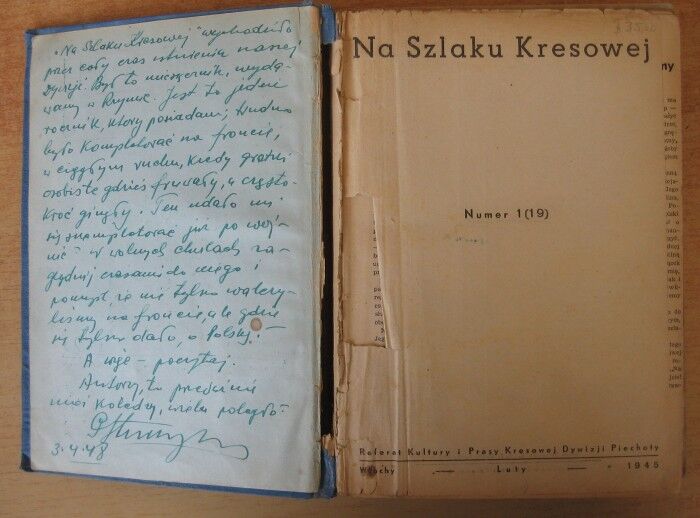 "Na Szlaku Kresowej" wychodziło
przez cały czas istnienia naszej
Dywizji. Był to miesięcznik, wyda-
wany w Rzymie. Jest to jeden
rocznik, który posiadam; trudno
było kompletować na froncie,
w ciągłym ruchu, kiedy graty
osobiste gdzieś fruwały, a często-
kroć ginęły. Ten udało mi
się skompletować już po woj-
nie – w wolnych chwilach za-
glądnij czasami do niego i
pomyśl, że nie tylko walczy-
liśmy na froncie, ale gdzie
się tylko dało, o Polskę! –
A więc – poczytaj.
Autorzy, to przeważnie
moi koledzy, wielu poległo –
3.4.48
33552
Na Szlaku Kresowej
Numer 1(19)
Referat Kultury i Prasy Kresowej Dywizji Piechoty
Włochy Luty 1945